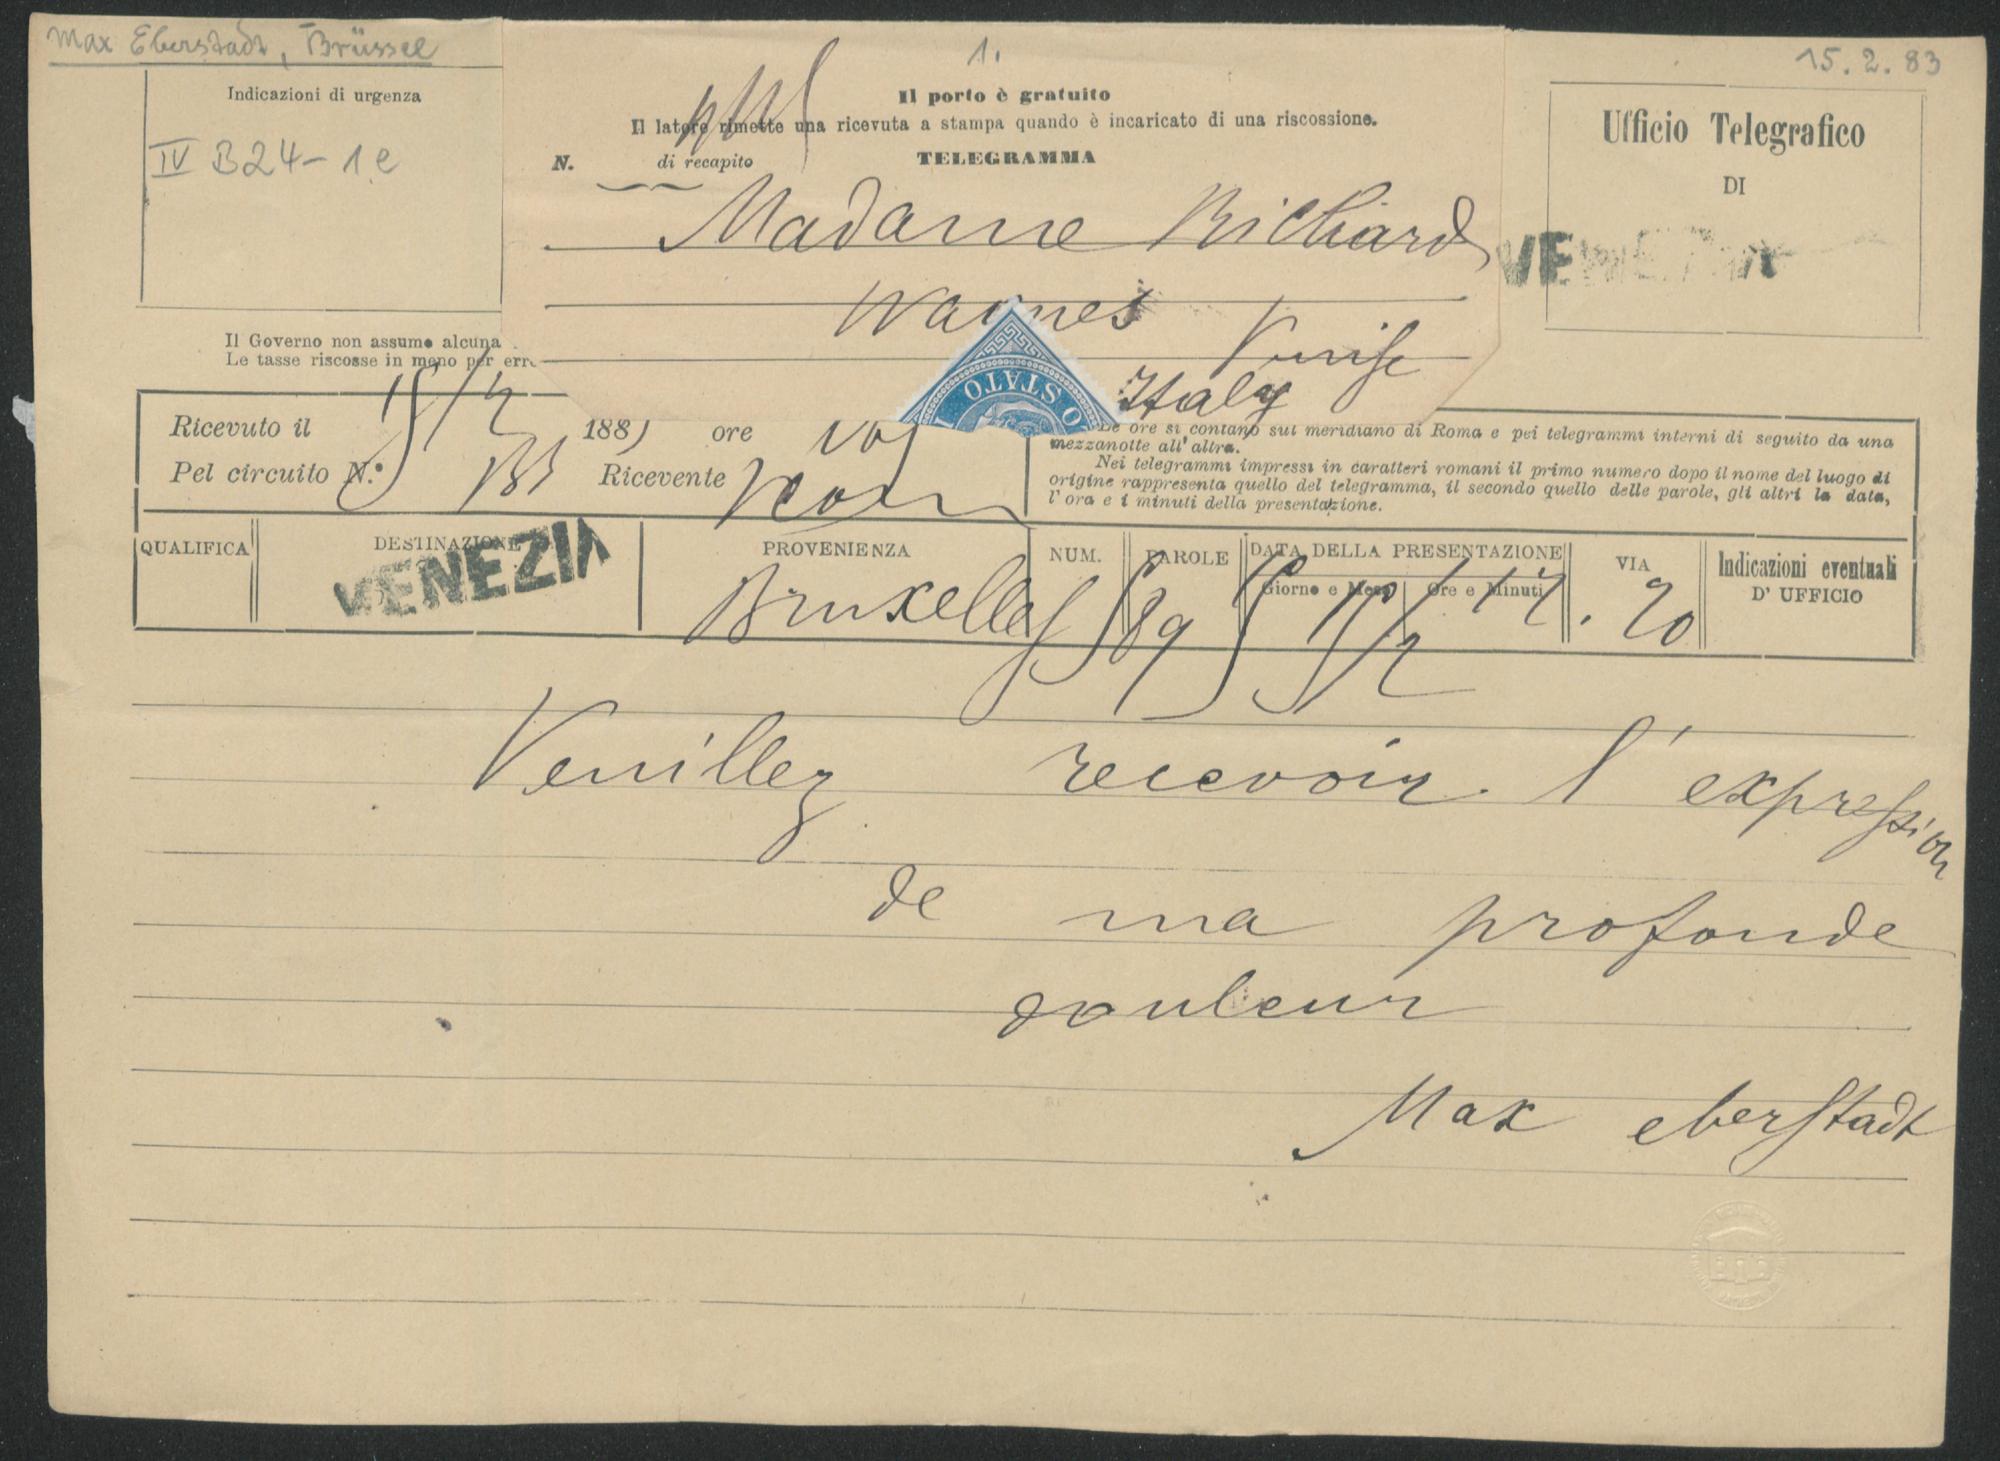 Max Eberstadt, Brüssel
1.
15.2.83
Indicazioni di urgenza
IV B24-1e
Il porto è gratuito
Il latore rimette una ricevuta a stampa quando è incaricato di una riscossione.
N. di recapito TELEGRAMMA
Madame Richard
Wagnes
Venise
Italy
Ufficio Telegrafico
DI
VENEZIA
Il Governo non assume alcuna
Le tasse riscosse in meno per err
O STATO
Ricevuto il 15/2 188 ore
Pel circuito N.° Ricevente
Le ore si contano sul meridiano di Roma e pei telegrammi interni di seguito da una
mezzanotte all' altra.
Nei telegrammi impressi in caratteri romani il primo numero dopo il nome del luogo di
origine rappresenta quello del telegramma, il secondo quello delle parole, gli altri la data,
l'ora e i minuti della presentazione.
QUALIFICA DESTINAZIONE PROVENIENZA NUM. PAROLE DATA DELLA PRESENTAZIONE VIA Indicazioni eventuali
Giorno e Mese Ore e Minuti D' UFFICIO
VENEZIA Bruxelles 15/2 12.20
Veuillez recevoir l'expression
de ma profonde
douleur
Max eberstadt